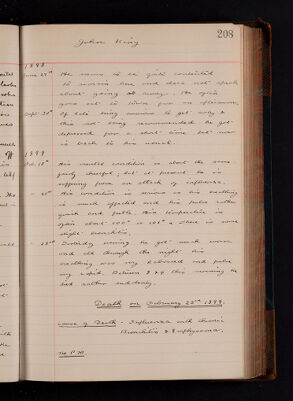 208
John King
1898
June 29th He seems to be quite contented
to remain here and does not speak
about going away. He again
goes out to town for an afternoon.
Sept. 30th Of late being anxious to get away &
this not being recommended he got
depressed for a short time but now
is back to his normal.
1899
Feb. 18th His mental condition is about the same,
fairly cheerful, but at present he is
suffering from an attack of influenza.
His condition is serious as his breathing
is much affected and his pulse rather
quick and feeble. His temperature is
again about 100° to 101° & there is some
slight bronchitis.
Saturday evening he got much worse
and all through the night his
breathing was very laboured and pulse
very rapid. Between 3 & 4 this morning he
died rather suddenly.
Death on February 25th 1899.
Cause of Death - Influenza with chronic
Bronchitis & Emphysema.
No P.M.